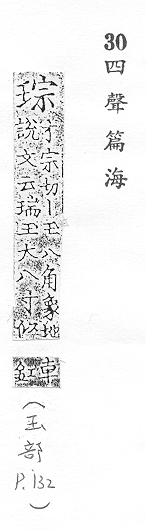 30四聲篇海
琮
才宗切丨玉八角象地
說文云瑞玉大八寸似
車
釭
(玉部 P.132)